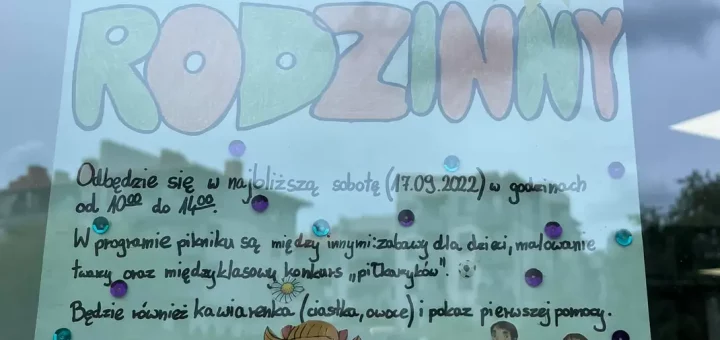 RODZINNY
Odbędzie się w najbliższą sobotę (17.09.2022) w godzinach
od 10⁰⁰ do 14⁰⁰.
W programie pikniku są między innymi: zabawy dla dzieci, malowanie
twarzy oraz międzyklasowy konkurs „piłkarzyków".
Będzie również kawiarenka (ciastka, owoce) i pokaz pierwszej pomocy.